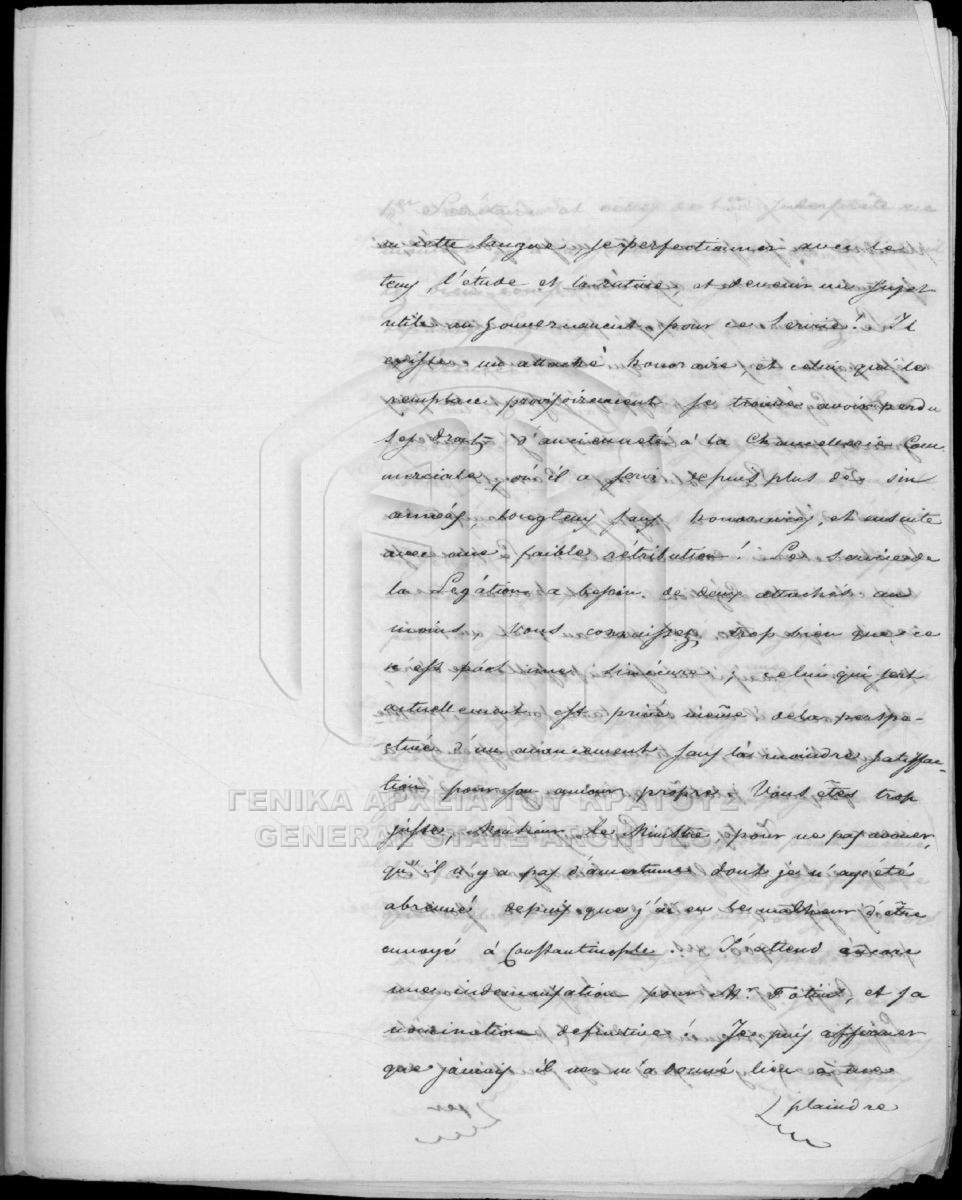 cette langue, se perfectionner avec le
tems, l'étude et la routine, et devenir un sujet
utile au gouvernement pour ce service! Il
existe un attaché honoraire, et celui qui le
remplace provisoirement se trouve avoir perdu
ses droits d'ancienneté à la Chancellerie Com
merciale, où il a servi depuis plus de
années, longtems sans honoraires, et ensuite
avec une faible rétribution! Le service de
la Légation a besoin de deux attachés au
moins. Vous connaissez trop bien que ce
n'est pas une sinécure; celui qui sert
actuellement est privé même de la perspe-
ctive d'un avancement sans la moindre satisfac-
tion pour son amour propre. Vous êtes trop
juste, Monsieur Le Ministre, pour ne pas avouer,
qu'il n'y a pas d'amertumes dont je n'aye été
abreuvé depuis que j'ai eu le malheur d'être
envoyé à Constantinople. J'attend encore
une indemnisation pour Mr. et sa
nomination definitive! Je puis affirmer
que jamais il ne m'a donné lieu à me
plaindre
ΓΕΝΙΚΑ ΑΡΧΕΙΑ ΤΟΥ ΚΡΑΤΟΥΣ
GENERAL STATE ARCHIVES